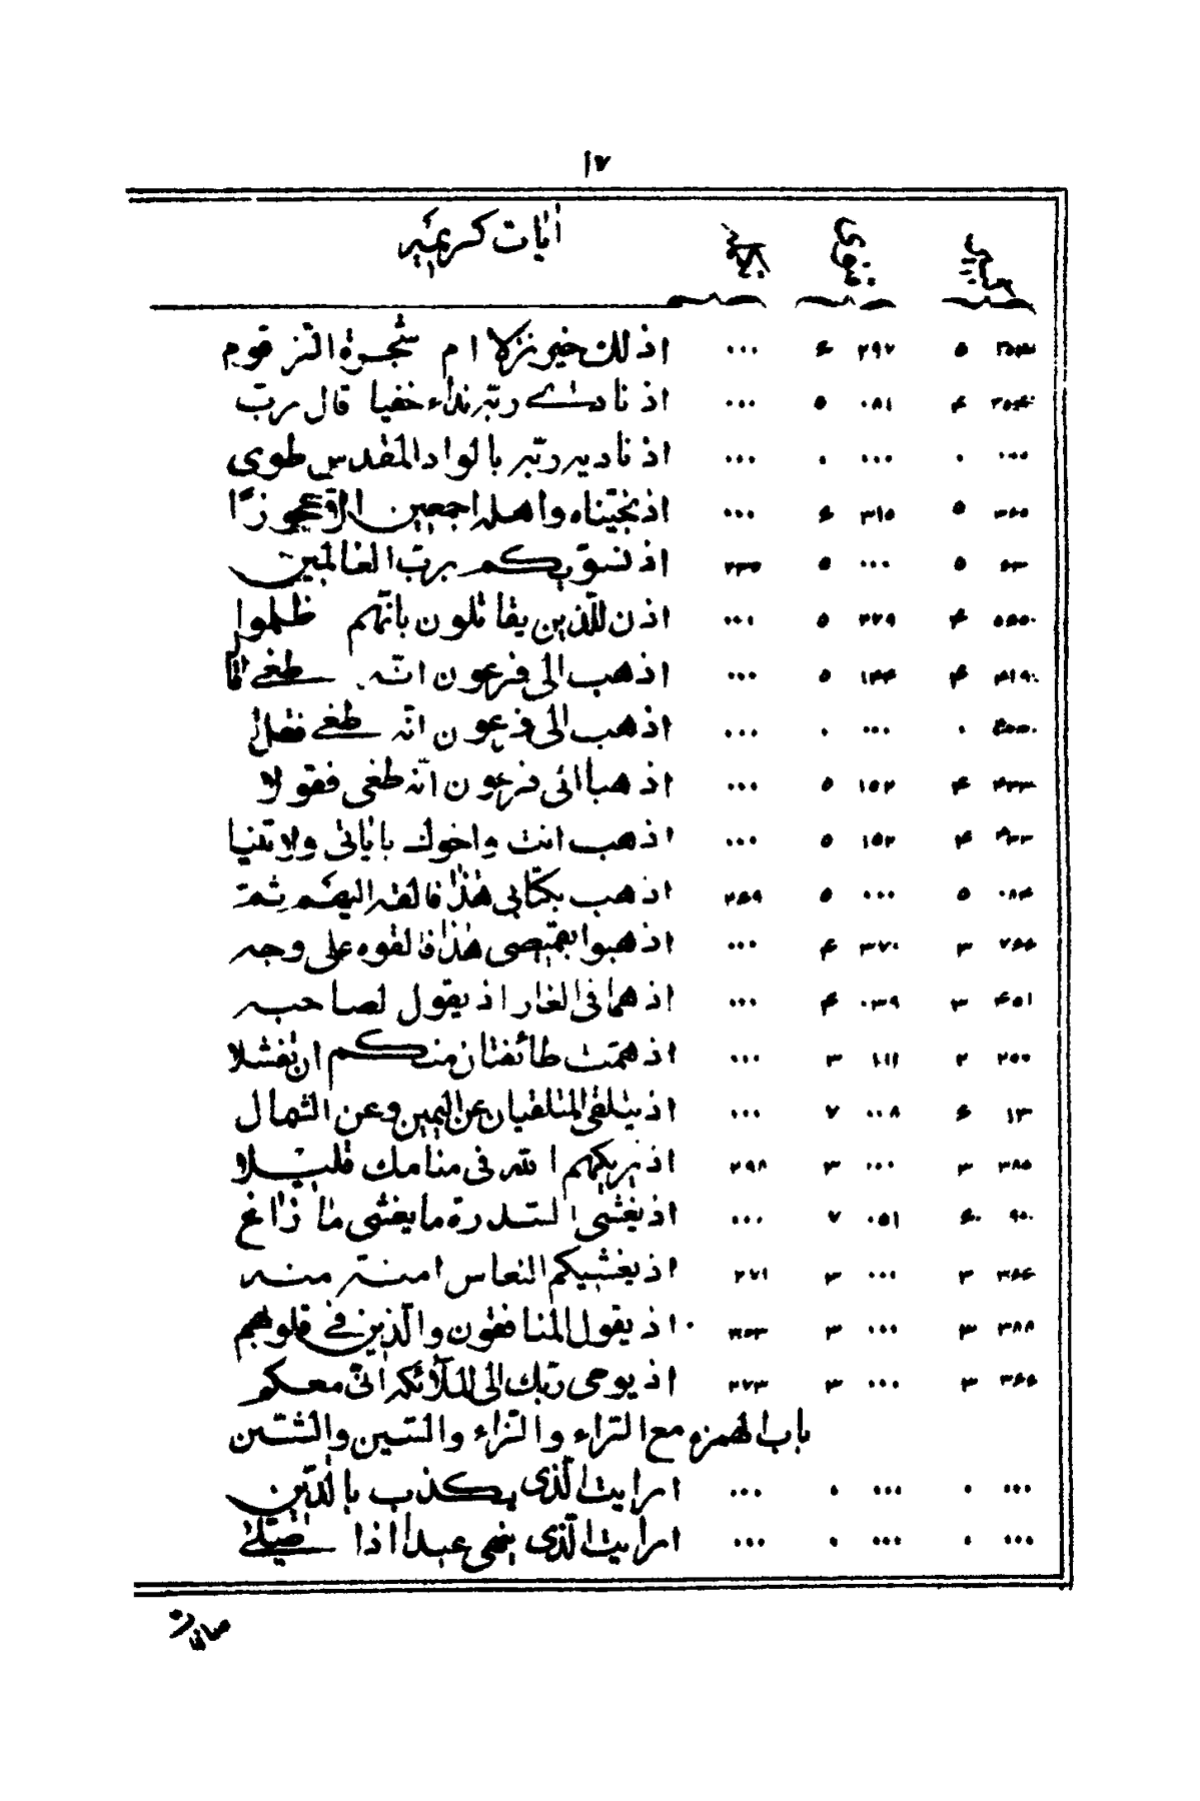 ١٧
اٰيات كريميه
٥ ٢٩٢ ۶ ٠٠٠ اذ لك خير نزلا ام شجرة الزقوم
۴ ٠٨١ ٥ ٠٠٠ اذ نادى ربه نداء خفيا قال رب
٠٠٠ ٠ ٠٠٠ ٠ ٠٠٠ اذ ناديه ربه بالواد المقدس طوى
٥ ٣١٥ ۶ ٠٠٠ اذ نجيناه واهله اجمعين الا عجوزا
٥ ٠٠٠ ٥ اذ نسويكم برب العالمين
۴ ٢٢٩ ٥ ٠٠٠ اذن للذين يقاتلون بانهم ظلموا
۴ ١۴۴ ٥ ٠٠٠ اذهب الى فرعون انه طغى
٠ ٠٠٠ ٠ ٠٠٠ اذهب الى فرعون انه طغى فقل
۴٣٣ ۴ ١٥٢ ٥ ٠٠٠ اذهبا الى فرعون انه طغى فقولا
۴ ١٥٢ ٥ ٠٠٠ اذهب انت واخوك باياتى ولا تنيا
٠٨۴ ٥ ٠٠٠ ٥ ٢۶٩ اذهب بكتابى هذا فالقه اليهم ثم
٧۶۶ ٣ ٣٧٠ ۴ ٠٠٠ اذهبوا بقميصى هذا فالقوه على وجه
۴٥١ ٣ ٠٣٩ ۴ ٠٠٠ اذ هما فى الغار اذ يقول لصاحبه
٢٥٠ ٢ ١١١ ٣ ٠٠٠ اذ همت طائفتان منكم ان تفشلا
١٣ ۶ ٠٠٨ ٧ ٠٠٠ اذ يتلقى المتلقيان عن اليمين وعن الشمال
٣٨٥ ٣ ٠٠٠ ٣ ٢٩٨ اذ يريكهم الله فى منامك قليلا
٩٥٠ ۶ ٠٥١ ٧ ٠٠٠ اذ يغشى السدرة ما يغشى ما زاغ
٣۶۶ ٣ ٠٠٠ ٣ ٢٧١ اذ يغشيكم النعاس امنة منه
٣٨٨ ٣ ٠٠٠ ٣ اذ يقول المنافقون والذين فى قلوبهم
٣۶۶ ٣ ٠٠٠ ٣ ٢٧٣ اذ يوحى ربك الى الملائكه انى معكم
باب الهمزه مع الراء والزاء والسين والشين
٠٠٠ ٠ ٠٠٠ ٠ ٠٠٠ ارايت الذى يكذب بالدين
٠٠٠ ٠ ٠٠٠ ٠ ٠٠٠ ارايت الذى ينهى عبدا اذا صلى